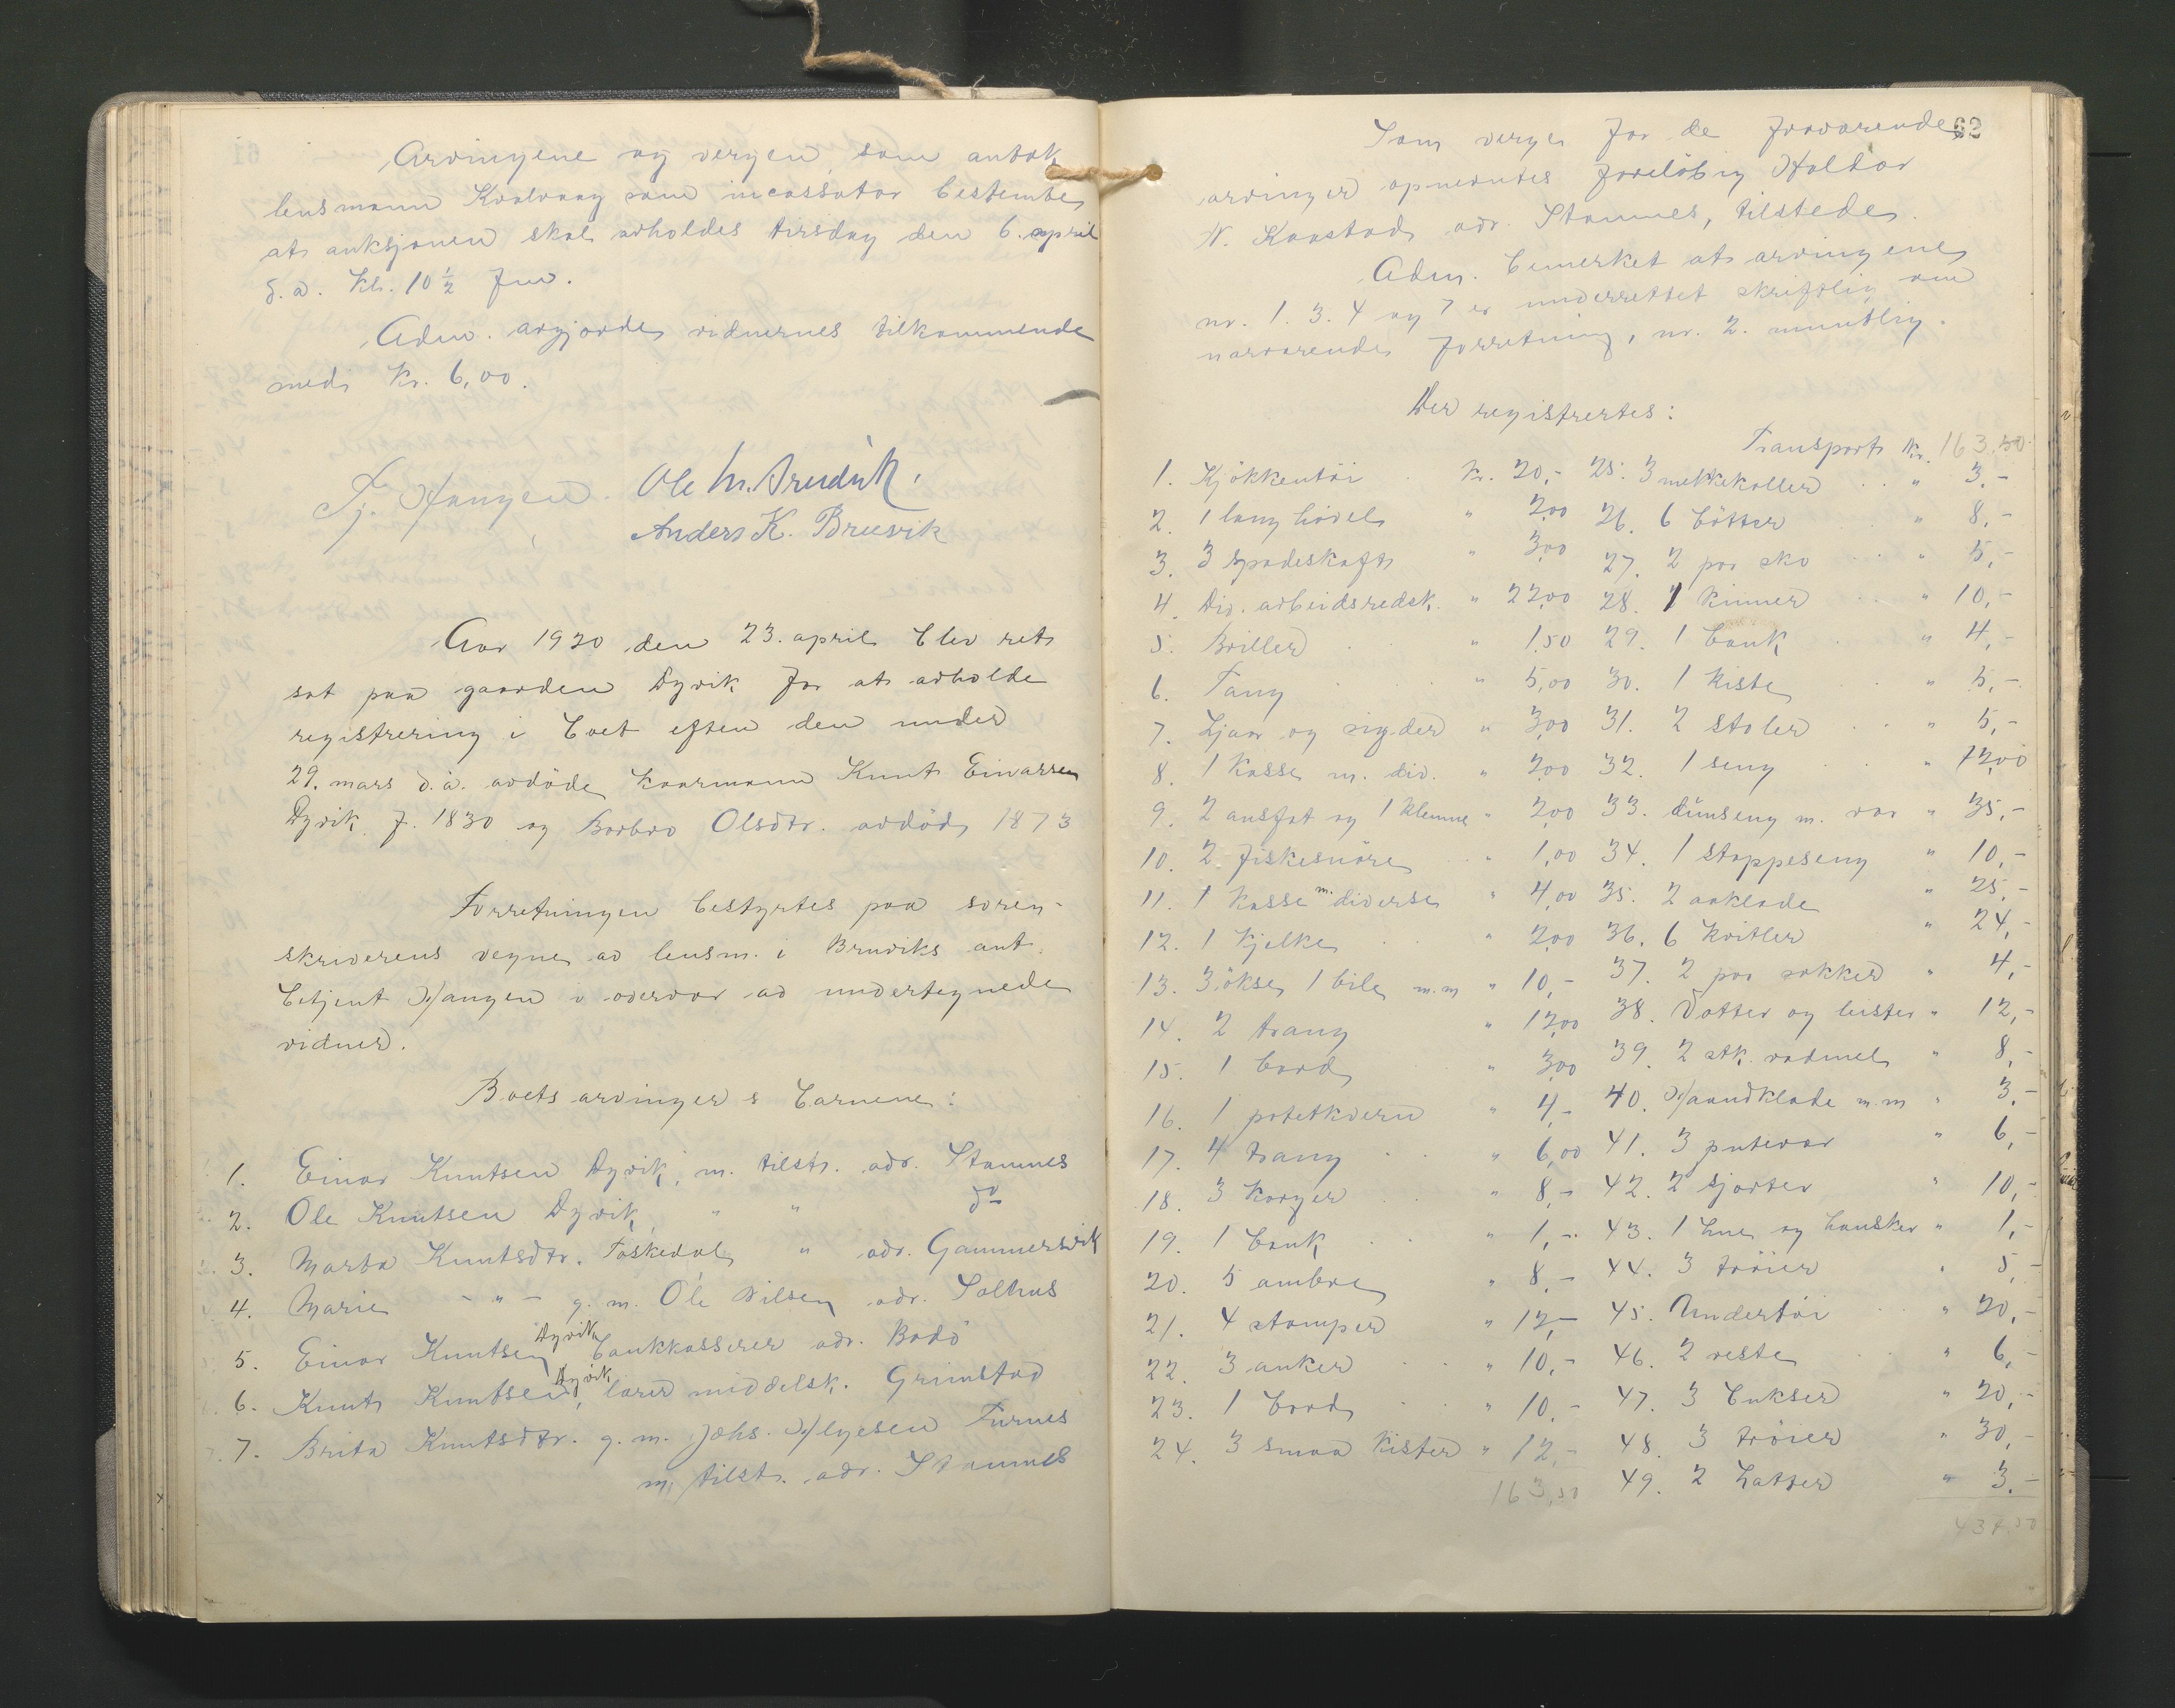 Arvingene og vergen som antok
lensmann Kvalvaag som incassator bestemte
at auksjonen skal avholdes tirsdag den 6. april
d.a. kl. 10 1/2 fm.
Adm. avgjorde vidnernes tilkommende
med kr. 6,00.
Tj. Haugen. Ole M. Bruvik.
Anders K. Bruvik
Aar 1920 den 23. april blev ret
sat paa gaarden Dyvik for at avholde
registrering i boet efter den under
29. mars d.a. avdöde kaarmann Knut Einarsen
Dyvik f. 1830 og Barbro Olsdtr. avdöd 1873
Forretningen bestyrtes paa soren-
skriverens vegne av lensm. i Bruviks aut.
betjent Haugen i overvær av undertegnede
vidner.
Boets arvinger er barnene:
1. Einar Knutsen Dyvik, m. tilst. adr. Stamnes
2. Ole Knutsen Dyvik " " do
3. Marta Knutsdtr. Toskedal " adr. Gammersvik
4. Marie - " - g. m. Ole Nilsen adr. Salhus
5. Einar Knutsen Dyvik bankkasserer adr. Bodö
6. Knut Knutsen Dyvik, lærer middelsk. Grimstad
7. Brita Knutsdtr. g. m. Johs. Helgesen Furnes
m. tilst. adr. Stamnes
62
Som verge for de fraværende
arvinger opnevntes foreløbig Haldor
N. Kaastad adr. Stamnes, tilstede.
Adm. bemerket at arvingene
nr. 1. 3. 4 og 7 er underrettet skriftlig om
nærværende forretning, nr. 2. muntlig.
Der registrertes:
1. Kjökkentöi kr. 20,-
2. 1 lang hövel " 2,00
3. 3 spadeskaft " 3,00
4. Div. arbeidsredsk. " 22,00
5. Briller " 1,50
6. Tang " 5,00
7. Ljaar og sigder " 3,00
8. 1 kasse m. div. " 2,00
9. 2 ausfat og 1 klemme " 2,00
10. 2 fiskesnöre " 1,00
11. 1 kasse m. diverse " 4,00
12. 1 kjelke " 2,00
13. 3 ökse, 1 bile m.m " 10,-
14. 2 traug " 12,00
15. 1 bord " 3,00
16. 1 potetkvern " 4,-
17. 4 traug " 6,00
18. 3 korger " 8,-
19. 1 bank " 1,-
20. 5 ambre " 8,-
21. 4 stamper " 12,-
22. 3 anker " 10,-
23. 1 bord " 10,-
24. 3 smaa kister " 12,-
163,50
Transport kr. 163,50
25. 3 melkekoller " 3,-
26. 6 bötter " 8,-
27. 2 par sko " 5,-
28. 1 kinner " 10,-
29. 1 bank " 4,-
30. 1 kiste " 5,-
31. 2 stoler " 5,-
32. 1 seng " 12,00
33. dunseng m. var " 35,-
34. 1 stoppeseng " 10,-
35. 2 aaklæde " 25,-
36. 6 kvitler " 24,-
37. 2 par sokker " 4,-
38. Votter og leister " 12,-
39. 2 stk. vadmel " 8,-
40. Haandklæde m.m " 3,-
41. 3 putevar " 6,-
42. 2 sjorter " 10,-
43. 1 hue og hansker " 1,-
44. 3 tröier " 5,-
45. Undertöi " 20,-
46. 2 veste " 6,-
47. 3 bukser " 20,-
48. 3 tröier " 30,-
49. 2 hatter " 3,-
437,50